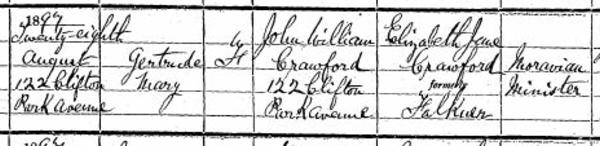 1897
Twenty-eighth
August
122 Clifton
Park Avenue
Gertrude
Mary
F
John William
Crawford
122 Clifton
Park Avenue
Elizabeth Jane
Crawford
formerly
Falkner
Moravian
Minister
1897